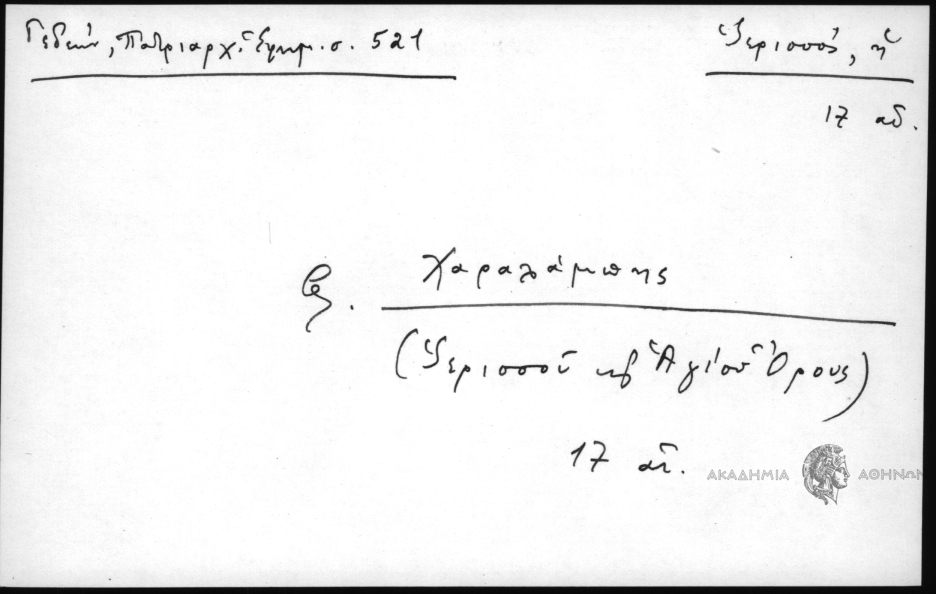 Γεδεών, Πατριαρχ. Ἐφημ. σ. 521
Ἱερισσός, ἡ
17 αἰ.
Χαραλάμπης
(Ἱερισσοῦ κ Ἁγίου Ὄρους)
17 αἰ.
ΑΚΑΔΗΜΙΑ ΑΘΗΝΩΝ